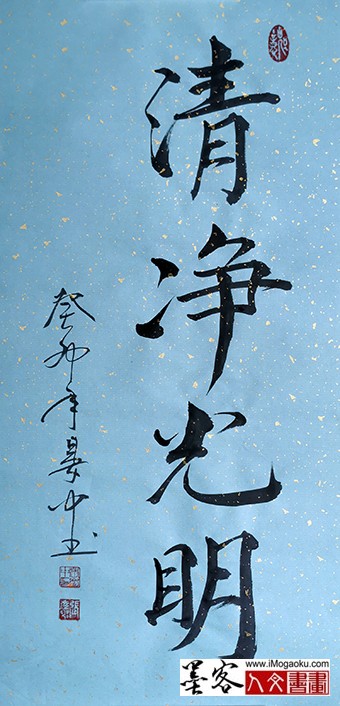 清净光明
癸卯年
墨客
www.iMogaoku.com
人文書畫